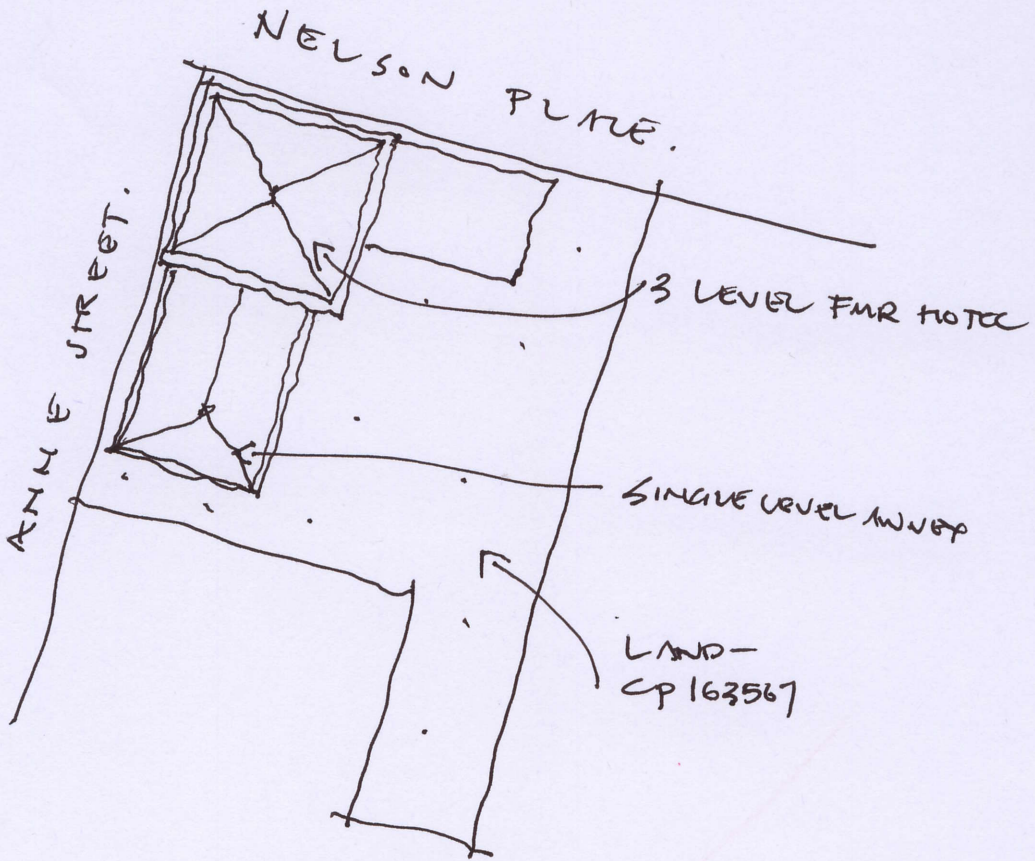 NELSON PLACE.
ANNE STREET.
3 LEVEL FMR HOTEL
SINGLE LEVEL ANNEX
LAND-
CP 163567